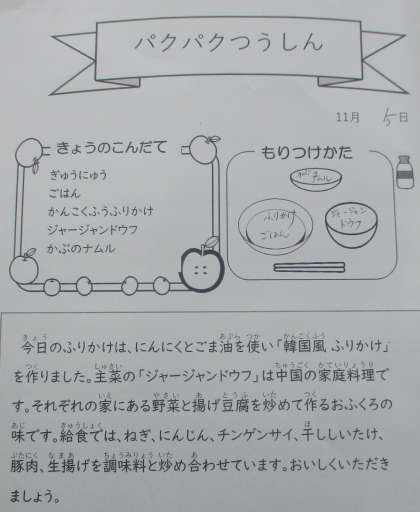 パクパクつうしん
11月 5日
きょうのこんだて
ぎゅうにゅう
ごはん
かんこくふうふりかけ
ジャージャンドウフ
かぶのナムル
もりつけかた
かぶの
ナムル
ふりかけ
ごはん
ジャージャン
ドウフ
今日のふりかけは、にんにくとごま油を使い「韓国風ふりかけ」
を作りました。主菜の「ジャージャンドウフ」は中国の家庭料理で
す。それぞれの家にある野菜と揚げ豆腐を炒めて作るおふくろの
味です。給食では、ねぎ、にんじん、チンゲンサイ、干ししいたけ、
豚肉、生揚げを調味料と炒め合わせています。おいしくいただき
ましょう。